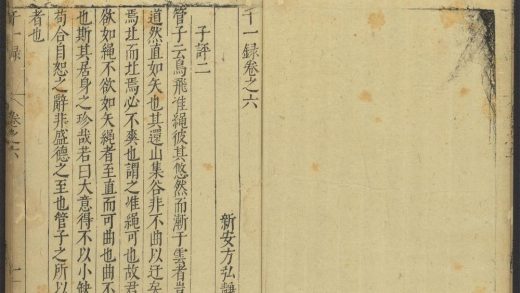 千一錄卷之六
新安方弘靜
子評二
管子云鳥飛准繩彼其悠然而漸于雲者豈
道然直如矢也其還山集谷非不曲以迂矣
焉北而北焉必不爽也謂之惟繩可也故君
欲如繩不欲如矢繩者至直而可曲也曲不
也斯其居身之珍哉若曰大意得不以小缺
苟合自恕之辭非盛德之至也管子之所以
者也
千一錄
卷之六
一